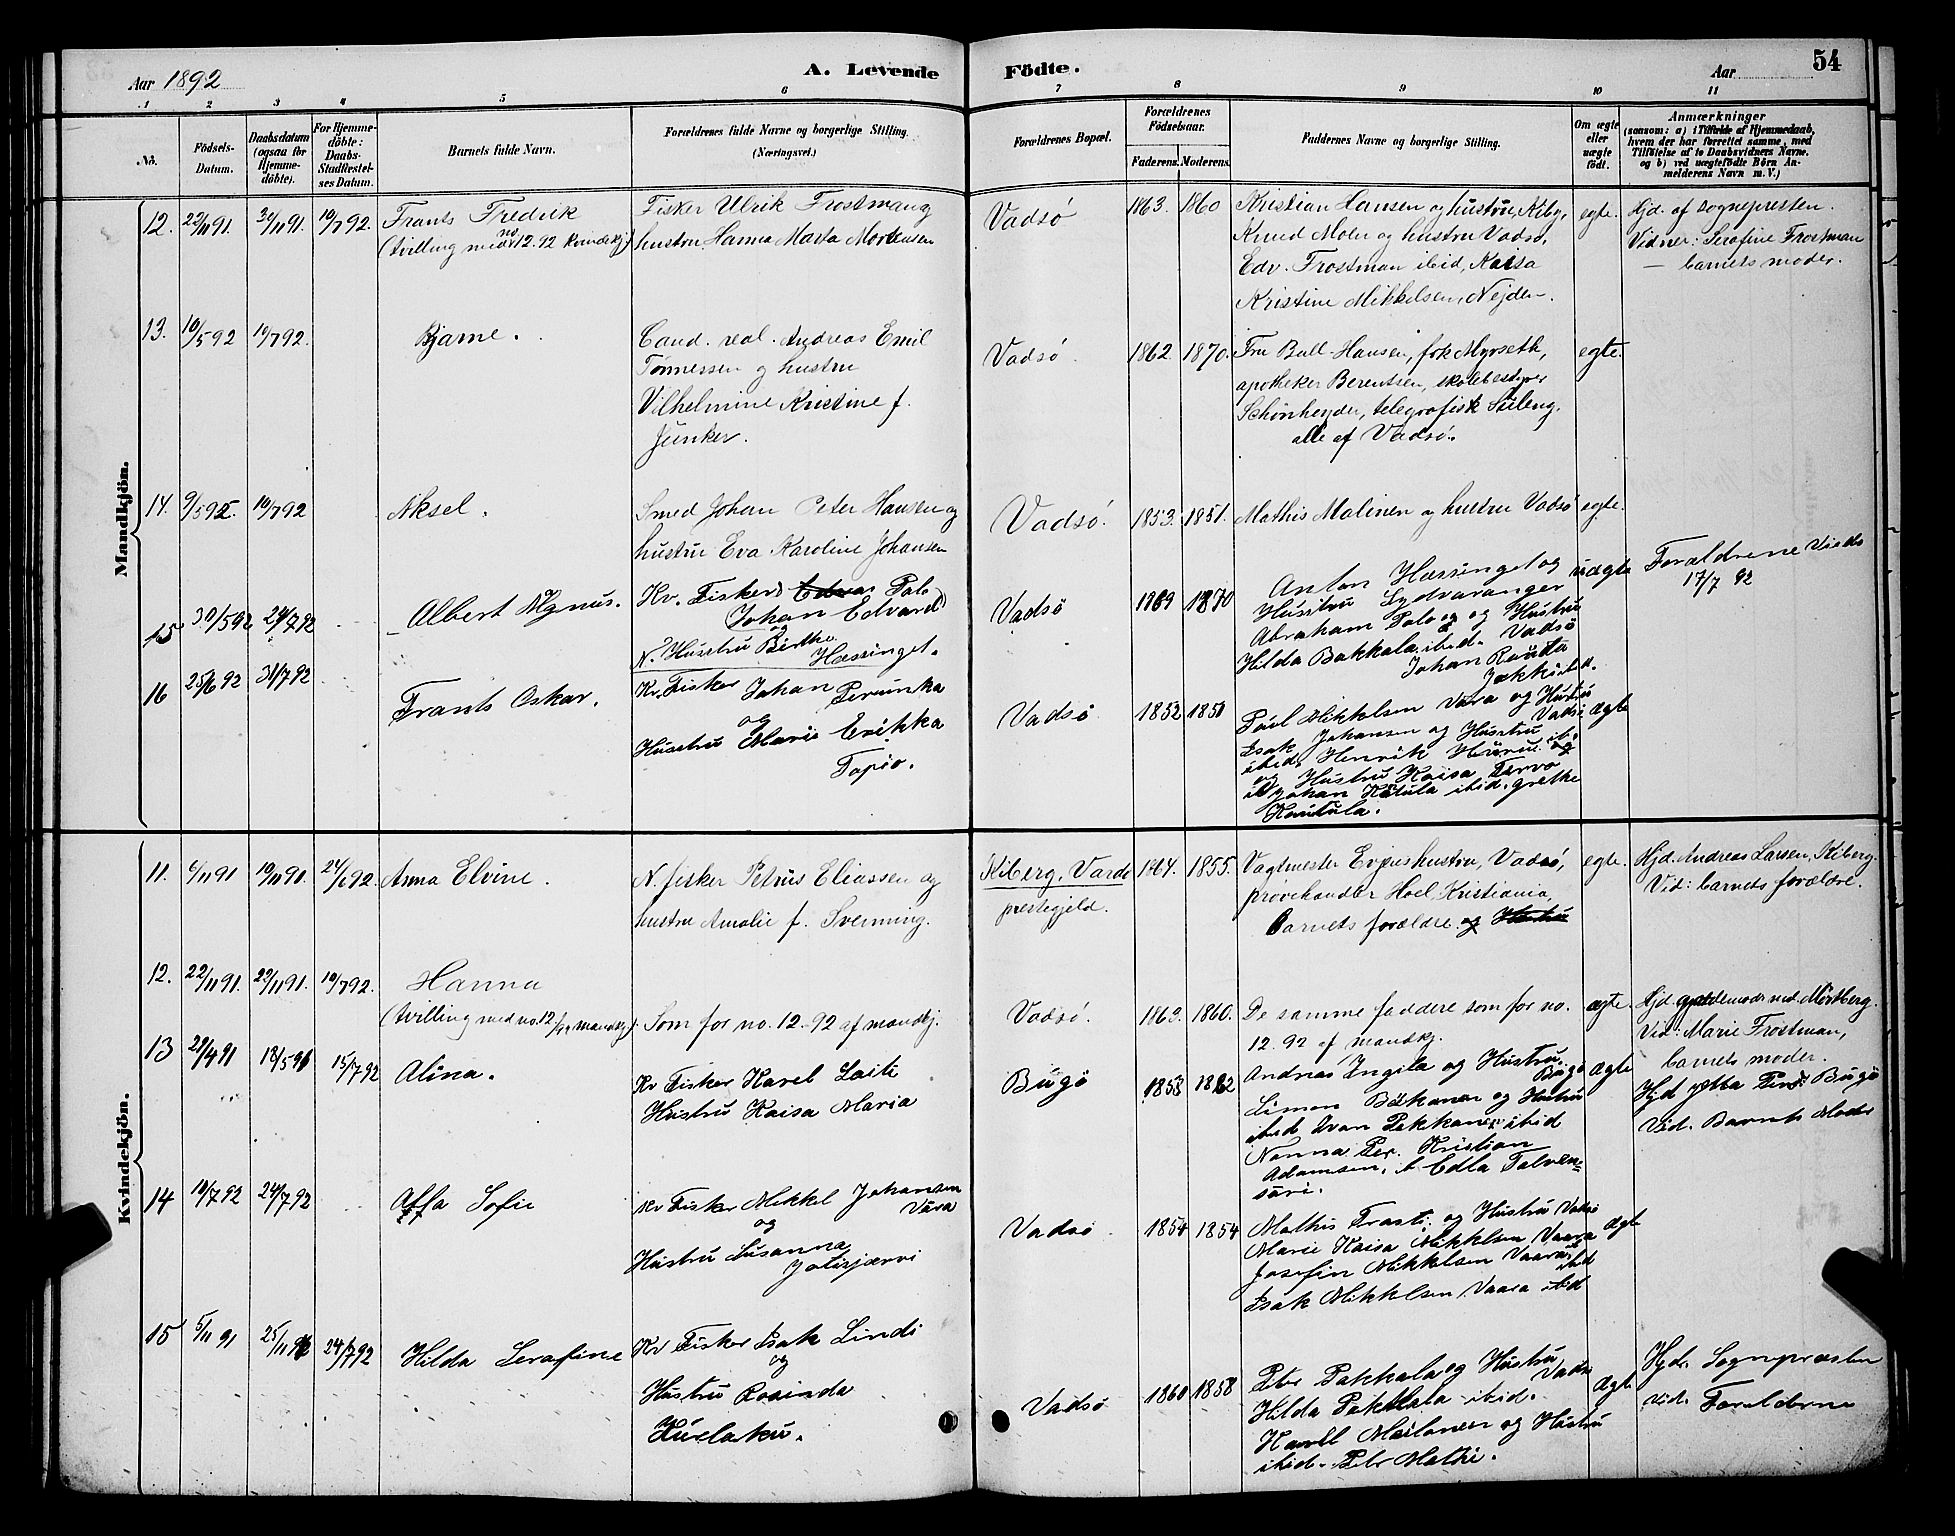 54
Aar 1892
A. Levende
Födte.
Aar
1 2 3 4 5 6 7 8 9 10 11
No.
Födsels-
Datum.
Daabsdatum
(ogsaa for
Hjemme-
döbte).
For Hjemme-
döbte:
Daabs-
Stadfæstel-
ses Datum.
Barnets fulde Navn.
Forældrenes fulde Navne og borgerlige Stilling
(Næringsvei.)
Forældrenes Bopæl.
Forældrenes
Födselsaar.
Faderens. Moderens.
Faddernes Navne og borgerlige Stilling.
Om ægte
eller
uægte
födt.
Anmærkninger
(saasom: a) i Tilfælde af Hjemmedaab,
hvem der har forrettet samme, med
Tilföielse af to Daabsvidners Navne.
og b) ved uægtefödte Börn An-
melderens Navn m. V.)
Mandkjön.
12. 22/11 91. 30/11 91. 10/7 92. Frants Fredrik
(tvilling med no. 12. 92 kvindekj.)
Fisker Ulrik Frostman og
hustru Hanna Marta Mortensen
Vadsø
1863. 1860
Kristian Hansen og hustru, Kiby,
Knud Moler og hustru Vadsø,
Edv. Frostman ibid, Kaisa
Kristine Mikkelsen, Nejden.
egte.
Hjd. af sognepresten.
Vidner: Serafine Frostman
— barnets moder.
13. 10/5 92 10/7 92. Bjarne.
Cand. real. Andreas Emil
Tønnessen og hustru
Vilhelmine Kristine f.
Junker.
Vadsø.
1862. 1870.
Fru Bull-Hansen, frk Myrseth,
apotheker Berentsen, skolebestyrer
Schønheyder, telegrafist Stileng.
alle af Vadsø.
egte.
14. 9/5 92. 10/7 92 Aksel.
Smed Johan Peter Hansen og
hustru Eva Karoline Johansen
Vadsø.
1853. 1851.
Mathis Malinen og hustru Vadsø
egte.
15 30/5 92 24/7 92 Albert Magnus.
Kv. Fisker Palo
(Johan Edvard)
og
N. Hustru Birthe
Hæssinget.
Vadsø
1869 1870
Anton Hæssinget og
Hustru Sydvaranger
Abraham Palo og Hustru
Hilda Bakkala ibid. Vadsø
Johan Rauta
uægte
Forældrene Viede
17/7 92
16 25/6 92 31/7 92 Frants Oskar.
Kv. Fisker Johan Perunka
og
Hustru Marie Erikka
Tapio.
Vadsø
1852 1851
Paul Mikkelsen Vara og Hustru
Vadsø
Isak Johansen og Hustru
ibid, Henrik
og Hustru Kaisa Tervo
Johan ibid. Grethe
Hautula.
Ægte
Kvindekjön.
11. 6/11 91 19/11 91. 24/6 92. Anna Elvine.
N. fisker Petrus Eliassen og
hustru Amalie f. Svenning.
Kiberg, Vardø
prestegjeld.
1864. 1855.
Vagtmester hustru, Vadsø,
prøvekandor Hoel, Kristiania,
Barnets forældre. og Hustru
egte.
Hjd. Andreas Larsen, Kiberg.
Vid: barnets forældre.
12. 22/11 91. 22/11 91. 10/7 92. Hanna
(tvilling med no. 12/92 mandkj.)
Som for no. 12-92 af mandkj.
Vadsø.
1863. 1860.
De samme faddere som for no.
12. 92 af mandkj.
ægte.
Hjd. gjordemoder ved Mørtberg.
Vid: Marie Frostman,
barnets moder.
13 29/4 91 18/5 91 15/7 92 Alina.
Kv Fisker Karel Laiti
Hustru Kaisa Maria
Bugø
1853 1862
Andreas Ingila og Hustru
Bugø
Simon og Hustru
ibid Ivan Pakkanen ibid
Nanna Per. Kristian
Adamsen, Edla Talven=
säri.
Ægte
Hjd Bugø
Vid. Barnets Moder
14 10/7 92 24/7 92 Affa Sofie
Kv Fisker Mikkel Johansen
Vara
og
Hustru Susanna
Vadsø
1854 1854
Mathis Trasti og Hustru Vadsø
Marie Kaisa Mikkelsen Vaara
Josefin Mikkelsen Vaara ibid
Isak Mikkelsen Vaara ibid
Ægte
15 5/11 91 25/11 91 24/7 92 Hilda Serafine
Kv Fisker Isak Lindi
og
Hustru Rosinda
Vadsø
1860 1858
Peter Pakkala og Hustru
Vadsø
Hilda Pakkala ibid.
Karel Mailanen og Hustru
ibid. Peter Mathi.
Ægte
Hjd. Sognepræsten
vid. Forældrene